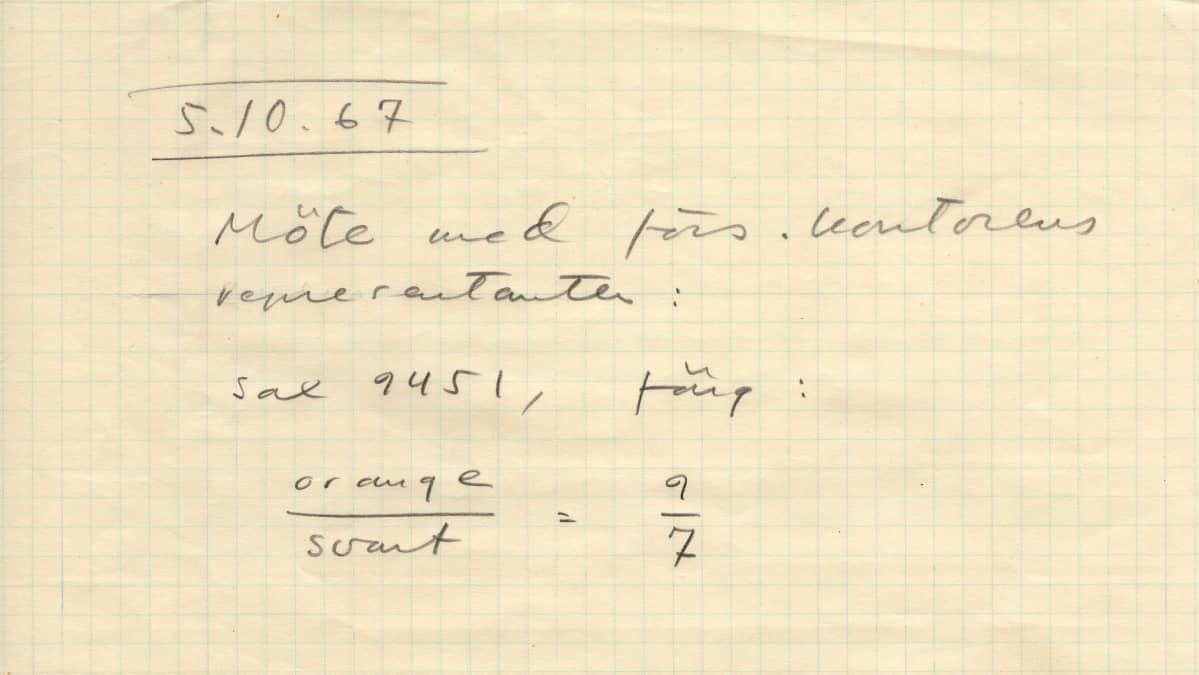 5.10.67
Möte med förs. kontorens
representanter:
sax 9451, färg:
orange
svart
=
9
7